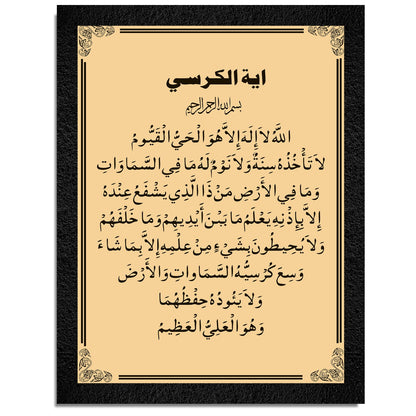 اية الكرسي
بسم الله الرحمن الرحيم
اللَّهُ لاَ إِلَهَ إِلاَّ هُوَ الْحَيُّ الْقَيُّومُ
لاَ تَأْخُذُهُ سِنَةٌ وَلاَ نَوْمٌ لَهُ مَا فِي السَّمَاوَاتِ
وَمَا فِي الأَرْضِ مَنْ ذَا الَّذِي يَشْفَعُ عِنْدَهُ
إِلاَّ بِإِذْنِهِ يَعْلَمُ مَا بَيْنَ أَيْدِيهِمْ وَمَا خَلْفَهُمْ
وَلاَ يُحِيطُونَ بِشَيْءٍ مِنْ عِلْمِهِ إِلاَّ بِمَا شَاءَ
وَسِعَ كُرْسِيُّهُ السَّمَاوَاتِ وَالأَرْضَ
وَلاَ يَئُودُهُ حِفْظُهُمَا
وَهُوَ الْعَلِيُّ الْعَظِيمُ